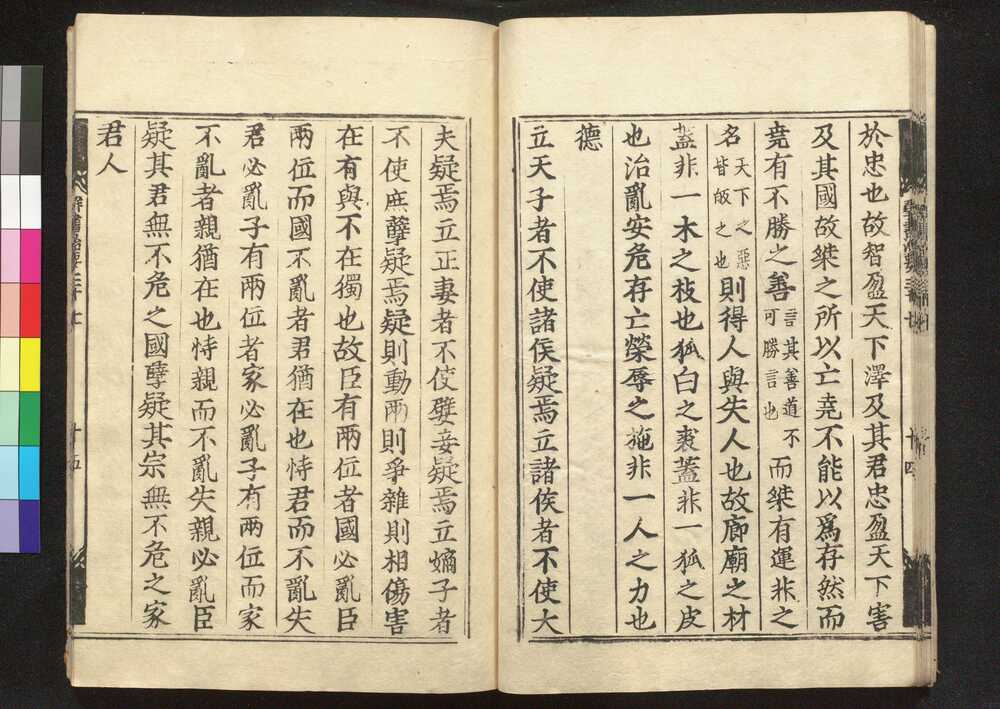 於忠也故智盈天下澤及其君忠盈天下害
及其國故桀之所以亡堯不能以爲存然而
堯有不勝之善言其善道不可勝言也而桀有運非之
名天下之惡皆皈之也則得人與失人也故廊廟之材
蓋非一木之枝也狐白之裘蓋非一狐之皮
也治亂安危存亡榮辱之施非一人之力也
德
立天子者不使諸侯疑焉立諸侯者不使大
夫疑焉立正妻者不使嬖妾疑焉立嫡子者
不使庶孽疑焉疑則動兩則爭雜則相傷害
在有與不在獨也故臣有兩位者國必亂臣
兩位而國不亂者君猶在也恃君而不亂失
君必亂子有兩位者家必亂子有兩位而家
不亂者親猶在也恃親而不亂失親必亂臣
疑其君無不危之國孽疑其宗無不危之家
君人
十四
十五